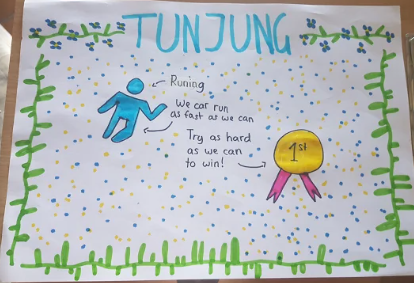 TUNJUNG
Runing
We car run
as fast as we can
Try as hard
as we can
to win!
1st